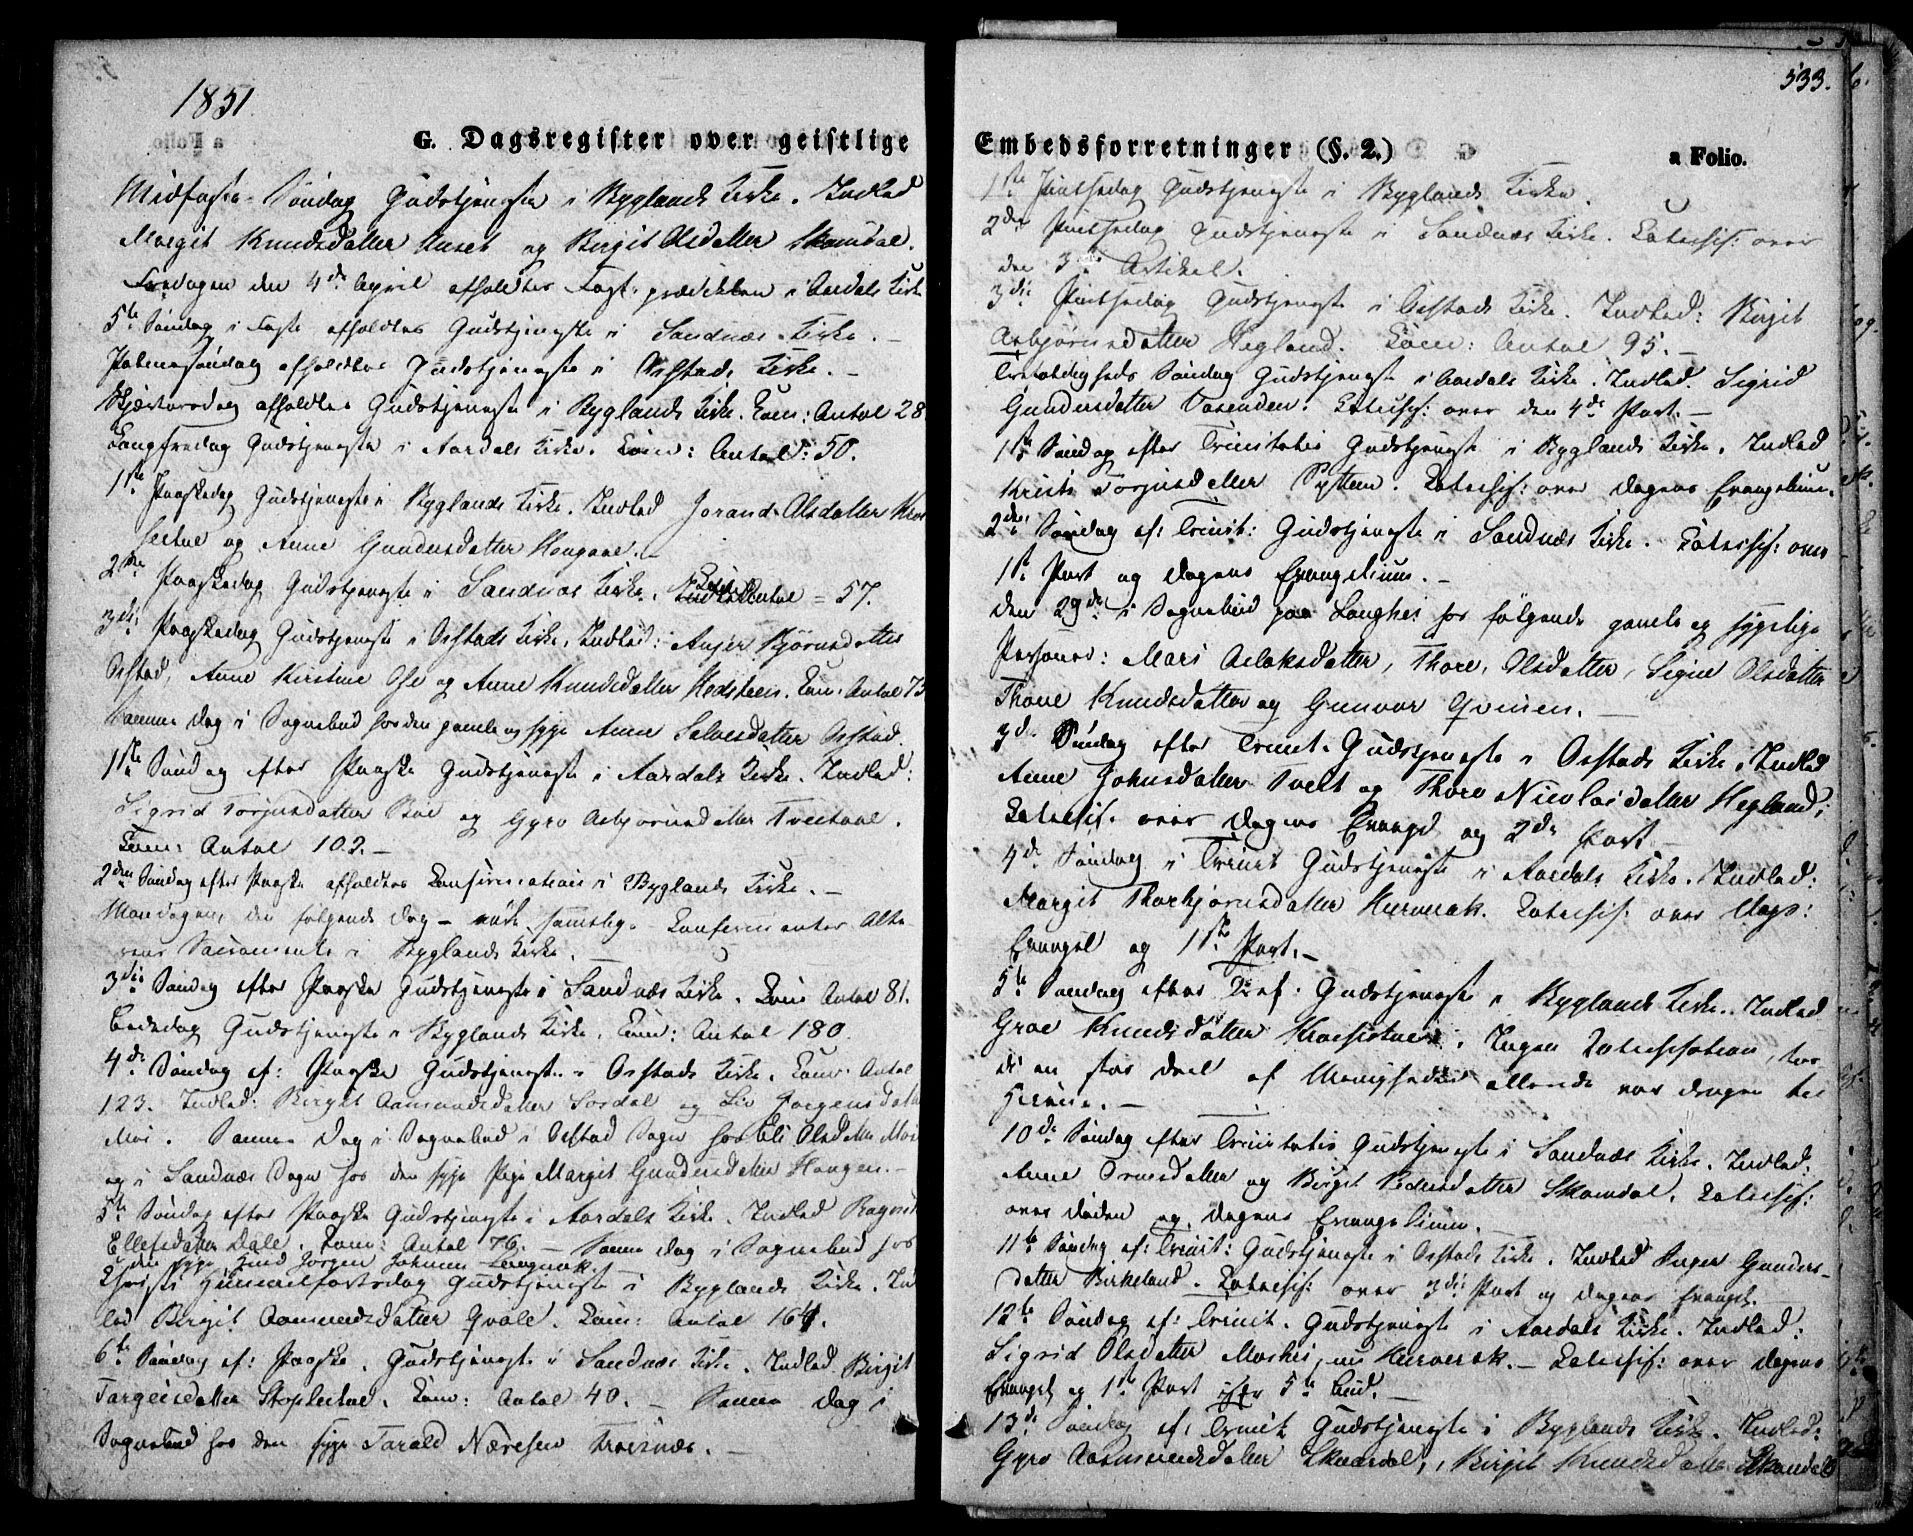 1851.
G. Dagsregister over geistlige
Midfaste-Søndag Gudstjeneste i Byglands Kirke. Indled
Margit Knudsdatter Auset og Birgit Olsdatter Skomdal.
Fredagen den 4de April afholdtes Fast-prædikken i Aardals Kirk
5te Søndag i Faste afholdtes Gudstjeneste i Sandnæs-Kirke. –
Palmesøndag afholdtes Gudstjeneste i Østads Kirke. –
Skjærtorsdag afholdtes Gudstjeneste i Byglands Kirke. Com: Antal 28
Langfredag Gudstjeneste i Aardals Kirke. Com: Antal: 50.
1ste Paaskedag Gudstjeneste i Byglands Kirke. Indled Jorand Olsdatter
og Anne Gundersdatter Haugaae. –
2den Paaskedag Gudstjeneste i Sandnæs Kirke. Com: Antal = 57.
3die Paaskedag Gudstjeneste i Østads Kirke. Indled: Anjer Bjørnsdatter
Østad, Anne Kirstine Ose og Anne Knudsdatter Hodstøen. Com: Antal 73
Samme Dag i Sognebud hos den gamle og syge Anne Salvesdatter Østad.
1ste Søndag efter Paaske Gudstjeneste i Aardals Kirke. Indled:
Sigrid Torjusdatter Bøe og Gyro Asbjørnsdatter Tveitaae.
Com: Antal 102. –
2den Søndag efter Paaske afholdtes Confirmation i Byglands Kirke. –
Mandagen, den følgende Dag – samtlige Confirmanter Alte-
rens Sacramente i Byglands Kirke.
3die Søndag efter Paaske Gudstjeneste i Sandnæs Kirke. Com: Antal 81.
Bededag Gudstjeneste i Byglands Kirke. Com: Antal 180.
4de Søndag ef: Paaske Gudstjeneste i Østads Kirke. Com: Antal
123. Indled: Birgit Aamundsdatter Sordal og Liv Jørgensdatter
Moi. Samme Dag i Sognebud i Østad Sogn hos Eli Olsdatter Moi
og i Sandnæs Sogn hos den syge Pige Margit Gundersdatter Haugen. –
5te Søndag efter Paaske Gudstjeneste i Aardals Kirke. Indled Ragnild
Ellefsdatter Dale. Com: Antal 76. – Samme Dag i Sognebud hos
den syge Jørgen Johnsen Langerak.
Christi Himmelfartsdag Gudstjeneste i Byglands Kirke. Ind
led Birgit Aamundsdatter Qvale. Com: Antal 164.
6te Søndag ef: Paaske. Gudstjeneste i Sandnæs Kirke. Indled Birgit
Targeisdatter. Com: Antal 40. – Samme Dag i
Sognebud hos den syge Tarald Næresen Froisnæs. –
533.
Embedsforretninger (§. 2.)
a Folio.
1ste Pintsedag Gudstjeneste i Byglands Kirke.
2den Pintsedag Gudstjeneste i Sandnæs Kirke. Catechis: over
den 3die Artikel.
3die Pintsedag Gudstjeneste i Østads Kirke. Indled: Birgit
Asbjørnsdatter Hegland. Com: Antal 95. –
Trefoldigheds Søndag Gudstjeneste i Aardals Kirke. Indled. Sigrid
Gundersdatter Vasenden. Catechis: over den 4de Part. –
1ste Søndag efter Trinitatis Gudstjeneste i Byglands Kirke. Indled
Torjusdatter. Catechis: over Dagens Evangelium.
2den Søndag ef: Trinit: Gudstjeneste i Sandnæs Kirke. Catechis: over
1ste Part og Dagens Evangelium. –
den 29de i Sognebud paa Langhei for følgende gamle og sygelige
Personer: Mari Aslaksdatter, Thore Olsdatter, Sigrid Olsdatter
Thone Knudsdatter og Gunvor. –
3die Søndag efter Trinit. Gudstjeneste i Østads Kirke. Indled
Anne Johnsdatter Tveit og Thore Nicolaisdatter Hegland;
Catechis. over Dagens Evangel og 2den Part
4de Søndag i Trinit Gudstjeneste i Aardals Kirke. Indled:
Margit Thorbjørnsdatter Hurverak. Catechis: over Dags:
Evangel og 1ste Part. –
5te Søndag efter Tr: Gudstjeneste i Byglands Kirke. Indled
Groe Knudsdatter. Ingen Catechisation, for
di en stor Deel af Menigheden allerede var dragen til
Heiene. –
10de Søndag efter Trinitatis Gudstjeneste i Sandnæs Kirke. Indled:
Anne Ormsdatter og Birgit Pedersdatter Skomdal. Catechis:
over Daaben og Dagens Evangelium. –
11te Søndag ef: Trinit: Gudstjeneste i Østads Kirke. Indled Inger Gunders-
datter Birkeland. Catechis: over 3die Part og Dagens Evangel. –
12te Søndag ef: Trinit. Gudstjeneste i Aardals Kirke. Indled:
Sigrid Olsdatter Moshei, nu Hurverak. – Catechis: over Dagens
Evangel og 1ste Part 5te Bud. –
13de Søndag ef: Trinit Gudstjeneste i Byglands Kirke. Indled:
Gyro Aasmundsdatter Skaardal, Birgit Knudsdatter Skomdal